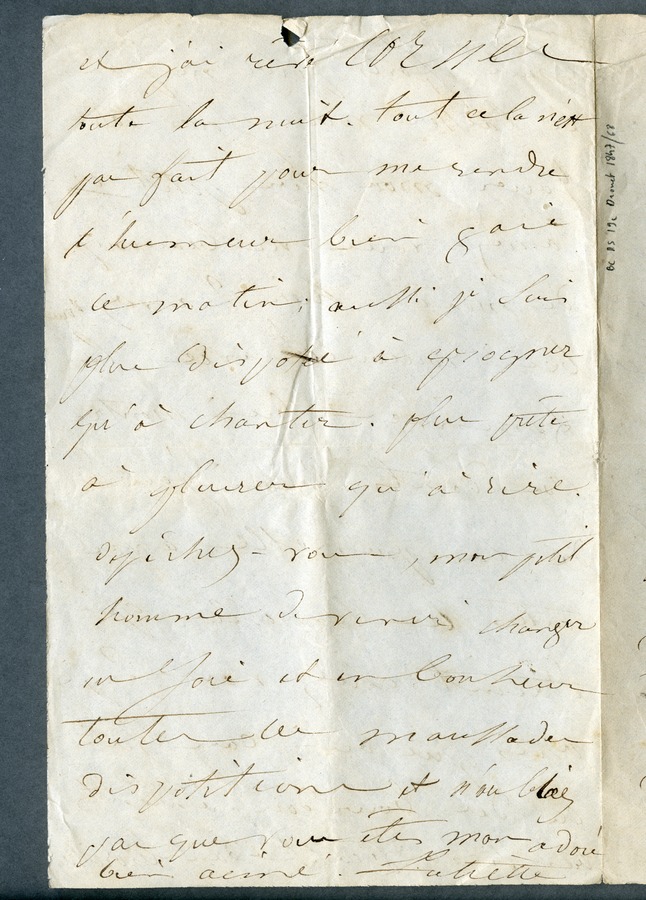 et j'ai rêvé CORNES
toute la nuit. tout cela n'est
pas fait pour me rendre
l'humeur bien gaie
ce matin; aussi je suis
plus disposée à grogner
qu'à chanter. plus prête
à pleurer qu'à rire.
dépêchez-vous, mon petit
homme de venir changer
en joie et en bonheur
toutes ces maussades
dispositions et n'oubliez
pas que vous êtes mon adoré
bien aimé. Juliette
BC DS 19c Drouet 1847/68